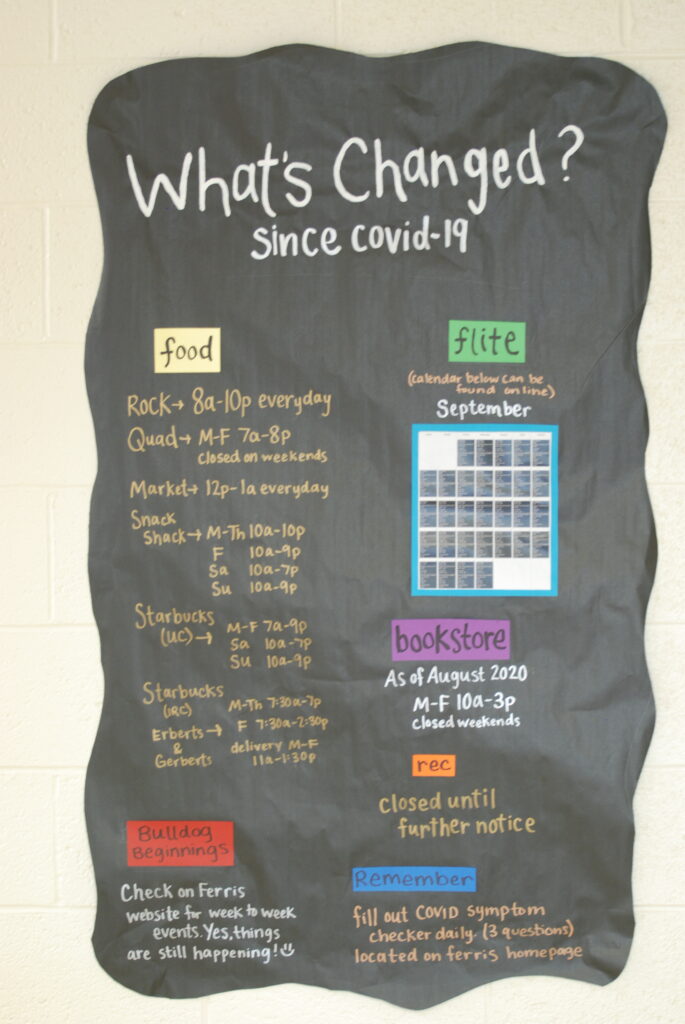 What's Changed?
since covid-19
food
Rock→ 8a-10p everyday
Quad→ M-F 7a-8p
closed on weekends
Market→ 12p-1a everyday
Snack
Shack→ M-Th 10a-10p
F 10a-9p
Sa 10a-7p
Su 10a-9p
Starbucks
(UC)→ M-F 7a-9p
Sa 10a-7p
Su 10a-9p
Starbucks
(IRC) M-Th 7:30a-7p
Erberts→ F 7:30a-2:30p
&
Gerberts
delivery M-F
11a-1:30p
Bulldog
Beginnings
Check on Ferris
website for week to week
events. Yes, things
are still happening!
flite
(calendar below can be
found online)
September
bookstore
As of August 2020
M-F 10a-3p
closed weekends
rec
closed until
further notice
Remember
fill out COVID symptom
checker daily. (3 questions)
located on ferris homepage